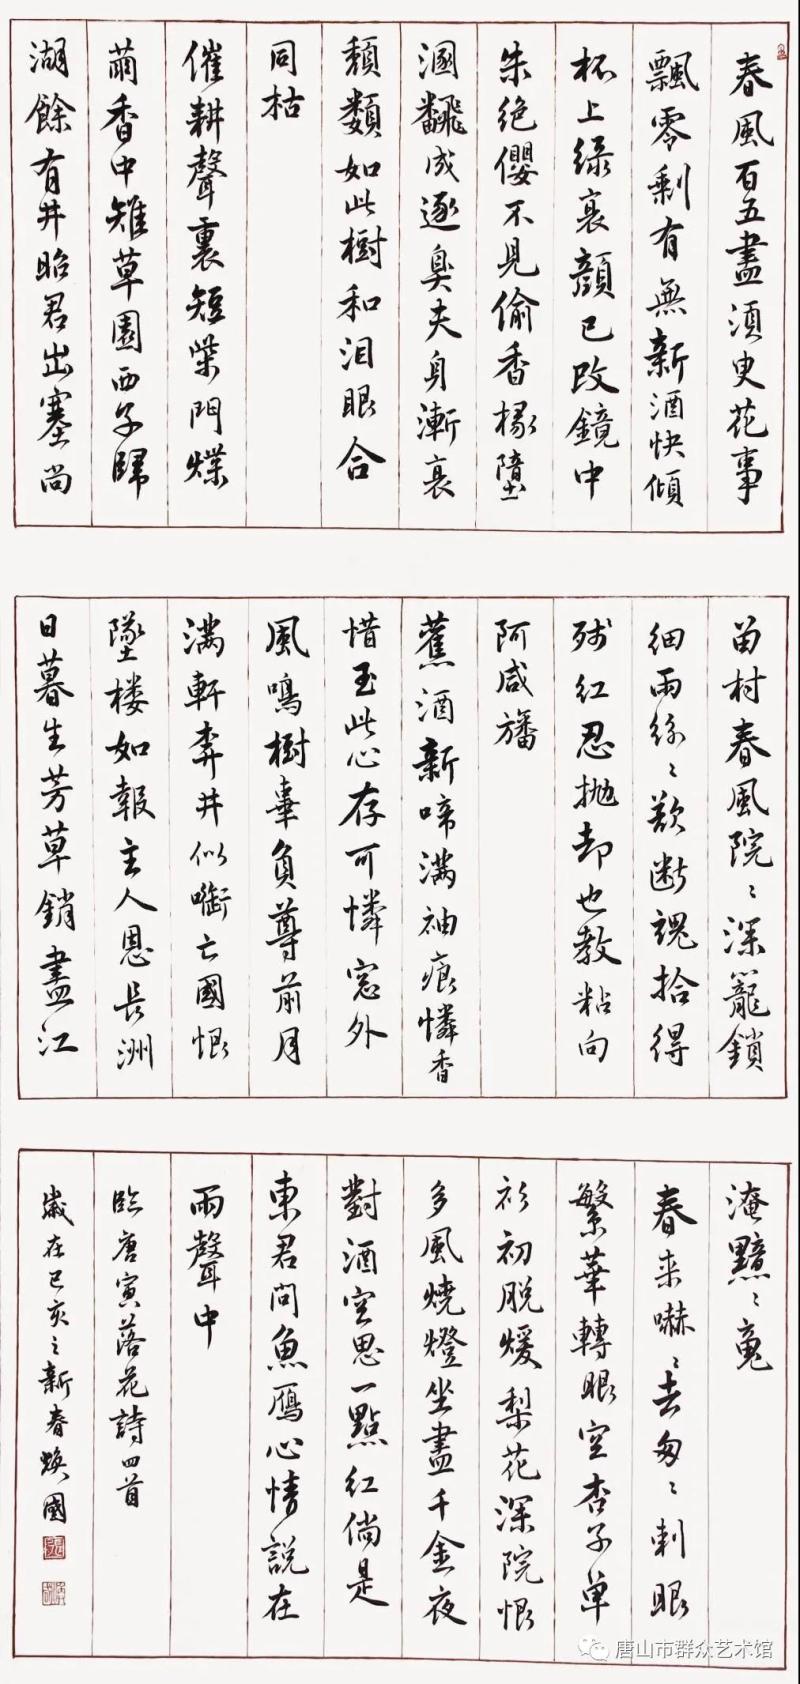 春風百五盡須臾花事
飄零剩有無新酒快傾
杯上綠衰顏已改鏡中
朱絕纓不見偷香掾墮
溷翻成逐臭夫身漸衰
頹類如此樹和淚眼合
同枯
催耕聲裏短柴門煤
繭香中雉草園西子歸
湖餘有井昭君出塞尚
留村春風院〻深籠鎖
細雨絲〻欲斷魂拾得
殘紅忍拋却也教粘向
阿咸旛
舊酒新啼滿袖痕憐香
惜玉此心存可憐窓外
風鳴樹辜負尊前月
滿軒奔井似啣亡國恨
墜楼如報主人恩長洲
日暮生芳草銷盡江
淹黯〻䰟
春来嚇〻去匆〻刺眼
繁華轉眼空杏子單
衫初脱煖梨花深院恨
多風燒燈坐盡千金夜
對酒空思一點紅倘是
東君問魚鴈心情説在
雨聲中
臨唐寅落花詩四首
歲在己亥之新春煥國
唐山市群众艺术馆